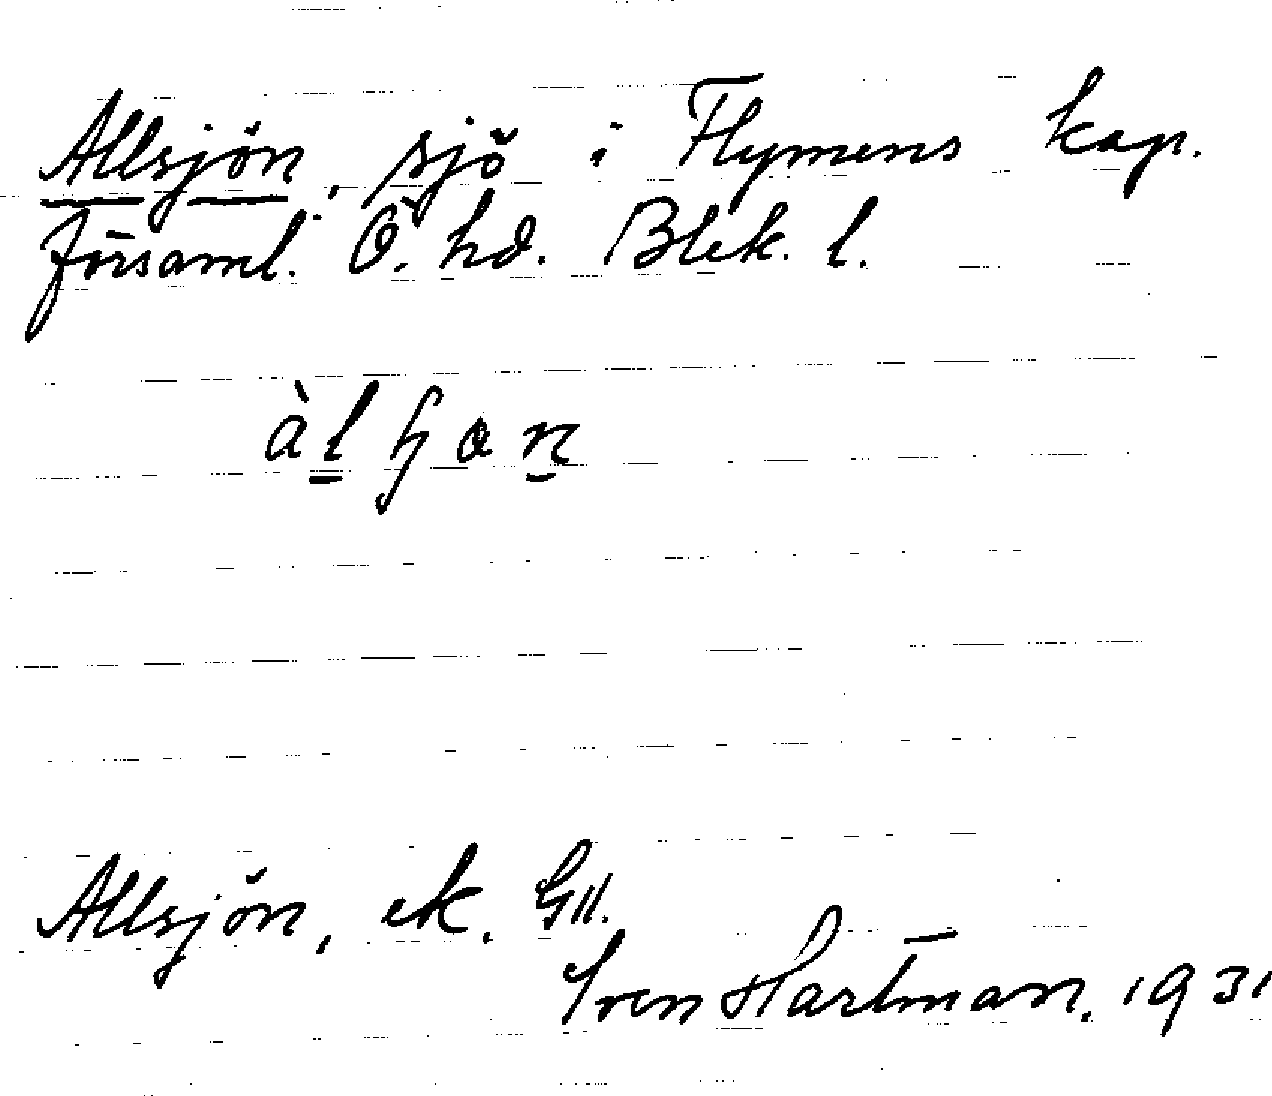 Allsjön, sjö i Flymens kap.
församl. Ö. hd. Blek. l.
Allsjön, ek. Gll.
Sven Hartman. 1931